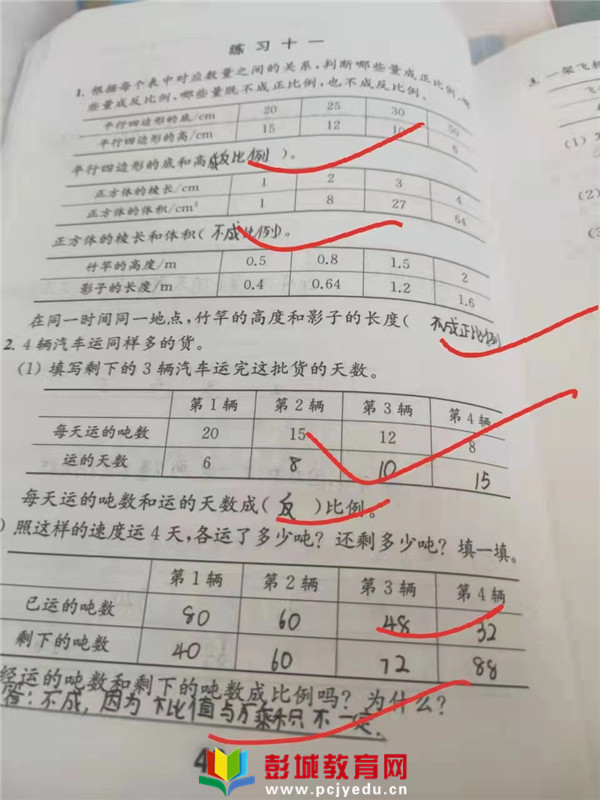 练习十一
1. 根据每个表中对应数量之间的关系,判断哪些量成正比例,哪
些量成反比例,哪些量既不成正比例,也不成反比例。
平行四边形的底/cm 20 25 30 50
平行四边形的高/cm 15 12 10 6
平行四边形的底和高(成反比例)。
正方体的棱长/cm 1 2 3 4
正方体的体积/cm³ 1 8 27 64
正方体的棱长和体积(不成比例)。
竹竿的高度/m 0.5 0.8 1.5 2
影子的长度/m 0.4 0.64 1.2 1.6
在同一时间同一地点,竹竿的高度和影子的长度( 成正比例
2. 4辆汽车运同样多的货。
(1) 填写剩下的3辆汽车运完这批货的天数。
第1辆 第2辆 第3辆 第4辆
每天运的吨数 20 15 12 8
运的天数 6 8 10 15
每天运的吨数和运的天数成(反)比例。
)照这样的速度运4天,各运了多少吨? 还剩多少吨? 填一填。
第1辆 第2辆 第3辆 第4辆
已运的吨数 80 60 48 32
剩下的吨数 40 60 72 88
经运的吨数和剩下的吨数成比例吗? 为什么?
答:不成,因为比值与乘积不一定.
4
3. 一架飞机
飞
(1)
(2)
(3
彭城教育网
www.pcjyedu.cn